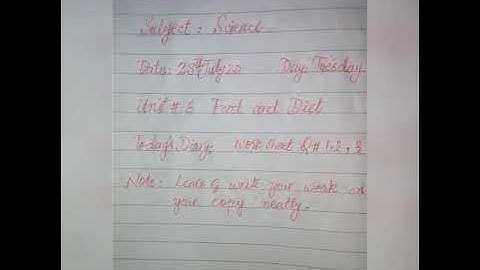 Subject: Science
Date: 28th July 20 Day: Tuesday
Unit # 6 Food and Diet
Today's Diary: work sheet Q# 1, 2, 3
Note: Learn & write your work on
your copy neatly.